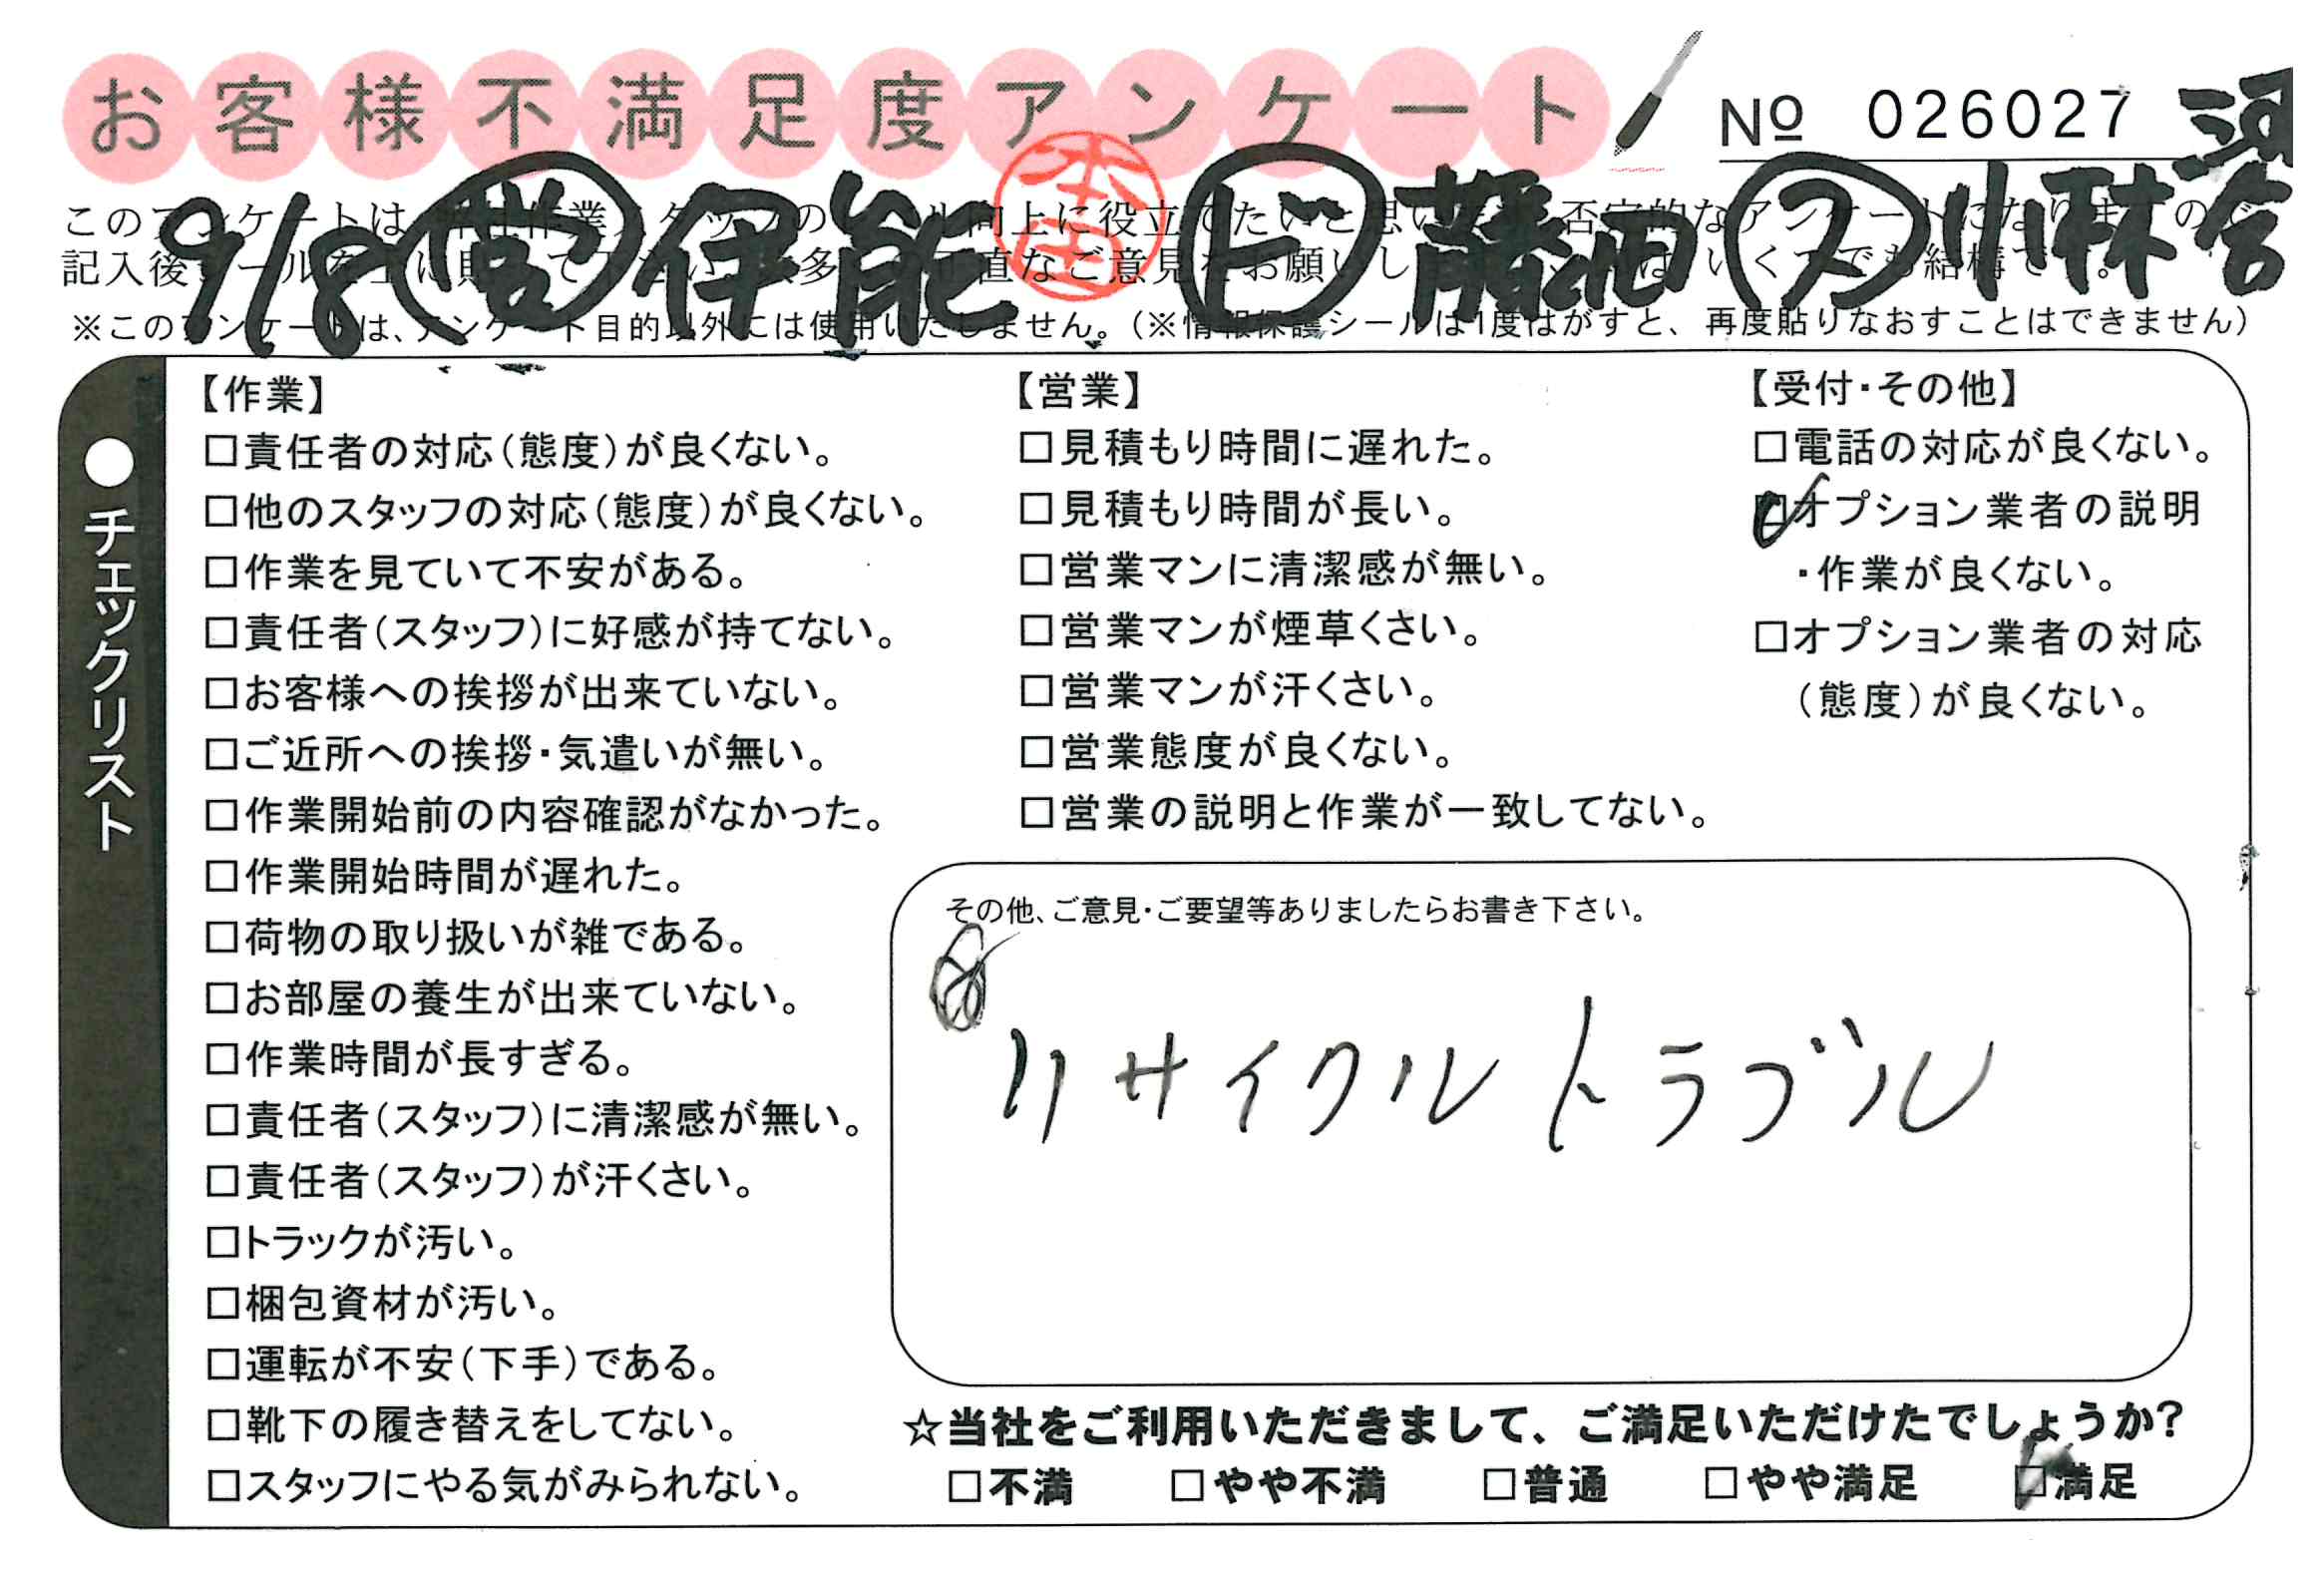 お客様不満足度アンケート
No 026027
9/8 営 伊能 本田 ド 藤田 ス 小林
※このアンケートは、アンケート目的以外には使用いたしません。(※情報保護シールは1度はがすと、再度貼りなおすことはできません)
●チェックリスト
【作業】
□責任者の対応(態度)が良くない。
□他のスタッフの対応(態度)が良くない。
□作業を見ていて不安がある。
□責任者(スタッフ)に好感が持てない。
□お客様への挨拶が出来ていない。
□ご近所への挨拶・気遣いが無い。
□作業開始前の内容確認がなかった。
□作業開始時間が遅れた。
□荷物の取り扱いが雑である。
□お部屋の養生が出来ていない。
□作業時間が長すぎる。
□責任者(スタッフ)に清潔感が無い。
□責任者(スタッフ)が汗くさい。
□トラックが汚い。
□梱包資材が汚い。
□運転が不安(下手)である。
□靴下の履き替えをしてない。
□スタッフにやる気がみられない。
【営業】
□見積もり時間に遅れた。
□見積もり時間が長い。
□営業マンに清潔感が無い。
□営業マンが煙草くさい。
□営業マンが汗くさい。
□営業態度が良くない。
□営業の説明と作業が一致してない。
【受付・その他】
□電話の対応が良くない。
☑オプション業者の説明
・作業が良くない。
□オプション業者の対応
(態度)が良くない。
その他、ご意見・ご要望等ありましたらお書き下さい。
リサイクルトラブル
☆当社をご利用いただきまして、ご満足いただけたでしょうか?
□不満 □やや不満 □普通 □やや満足 ☑満足